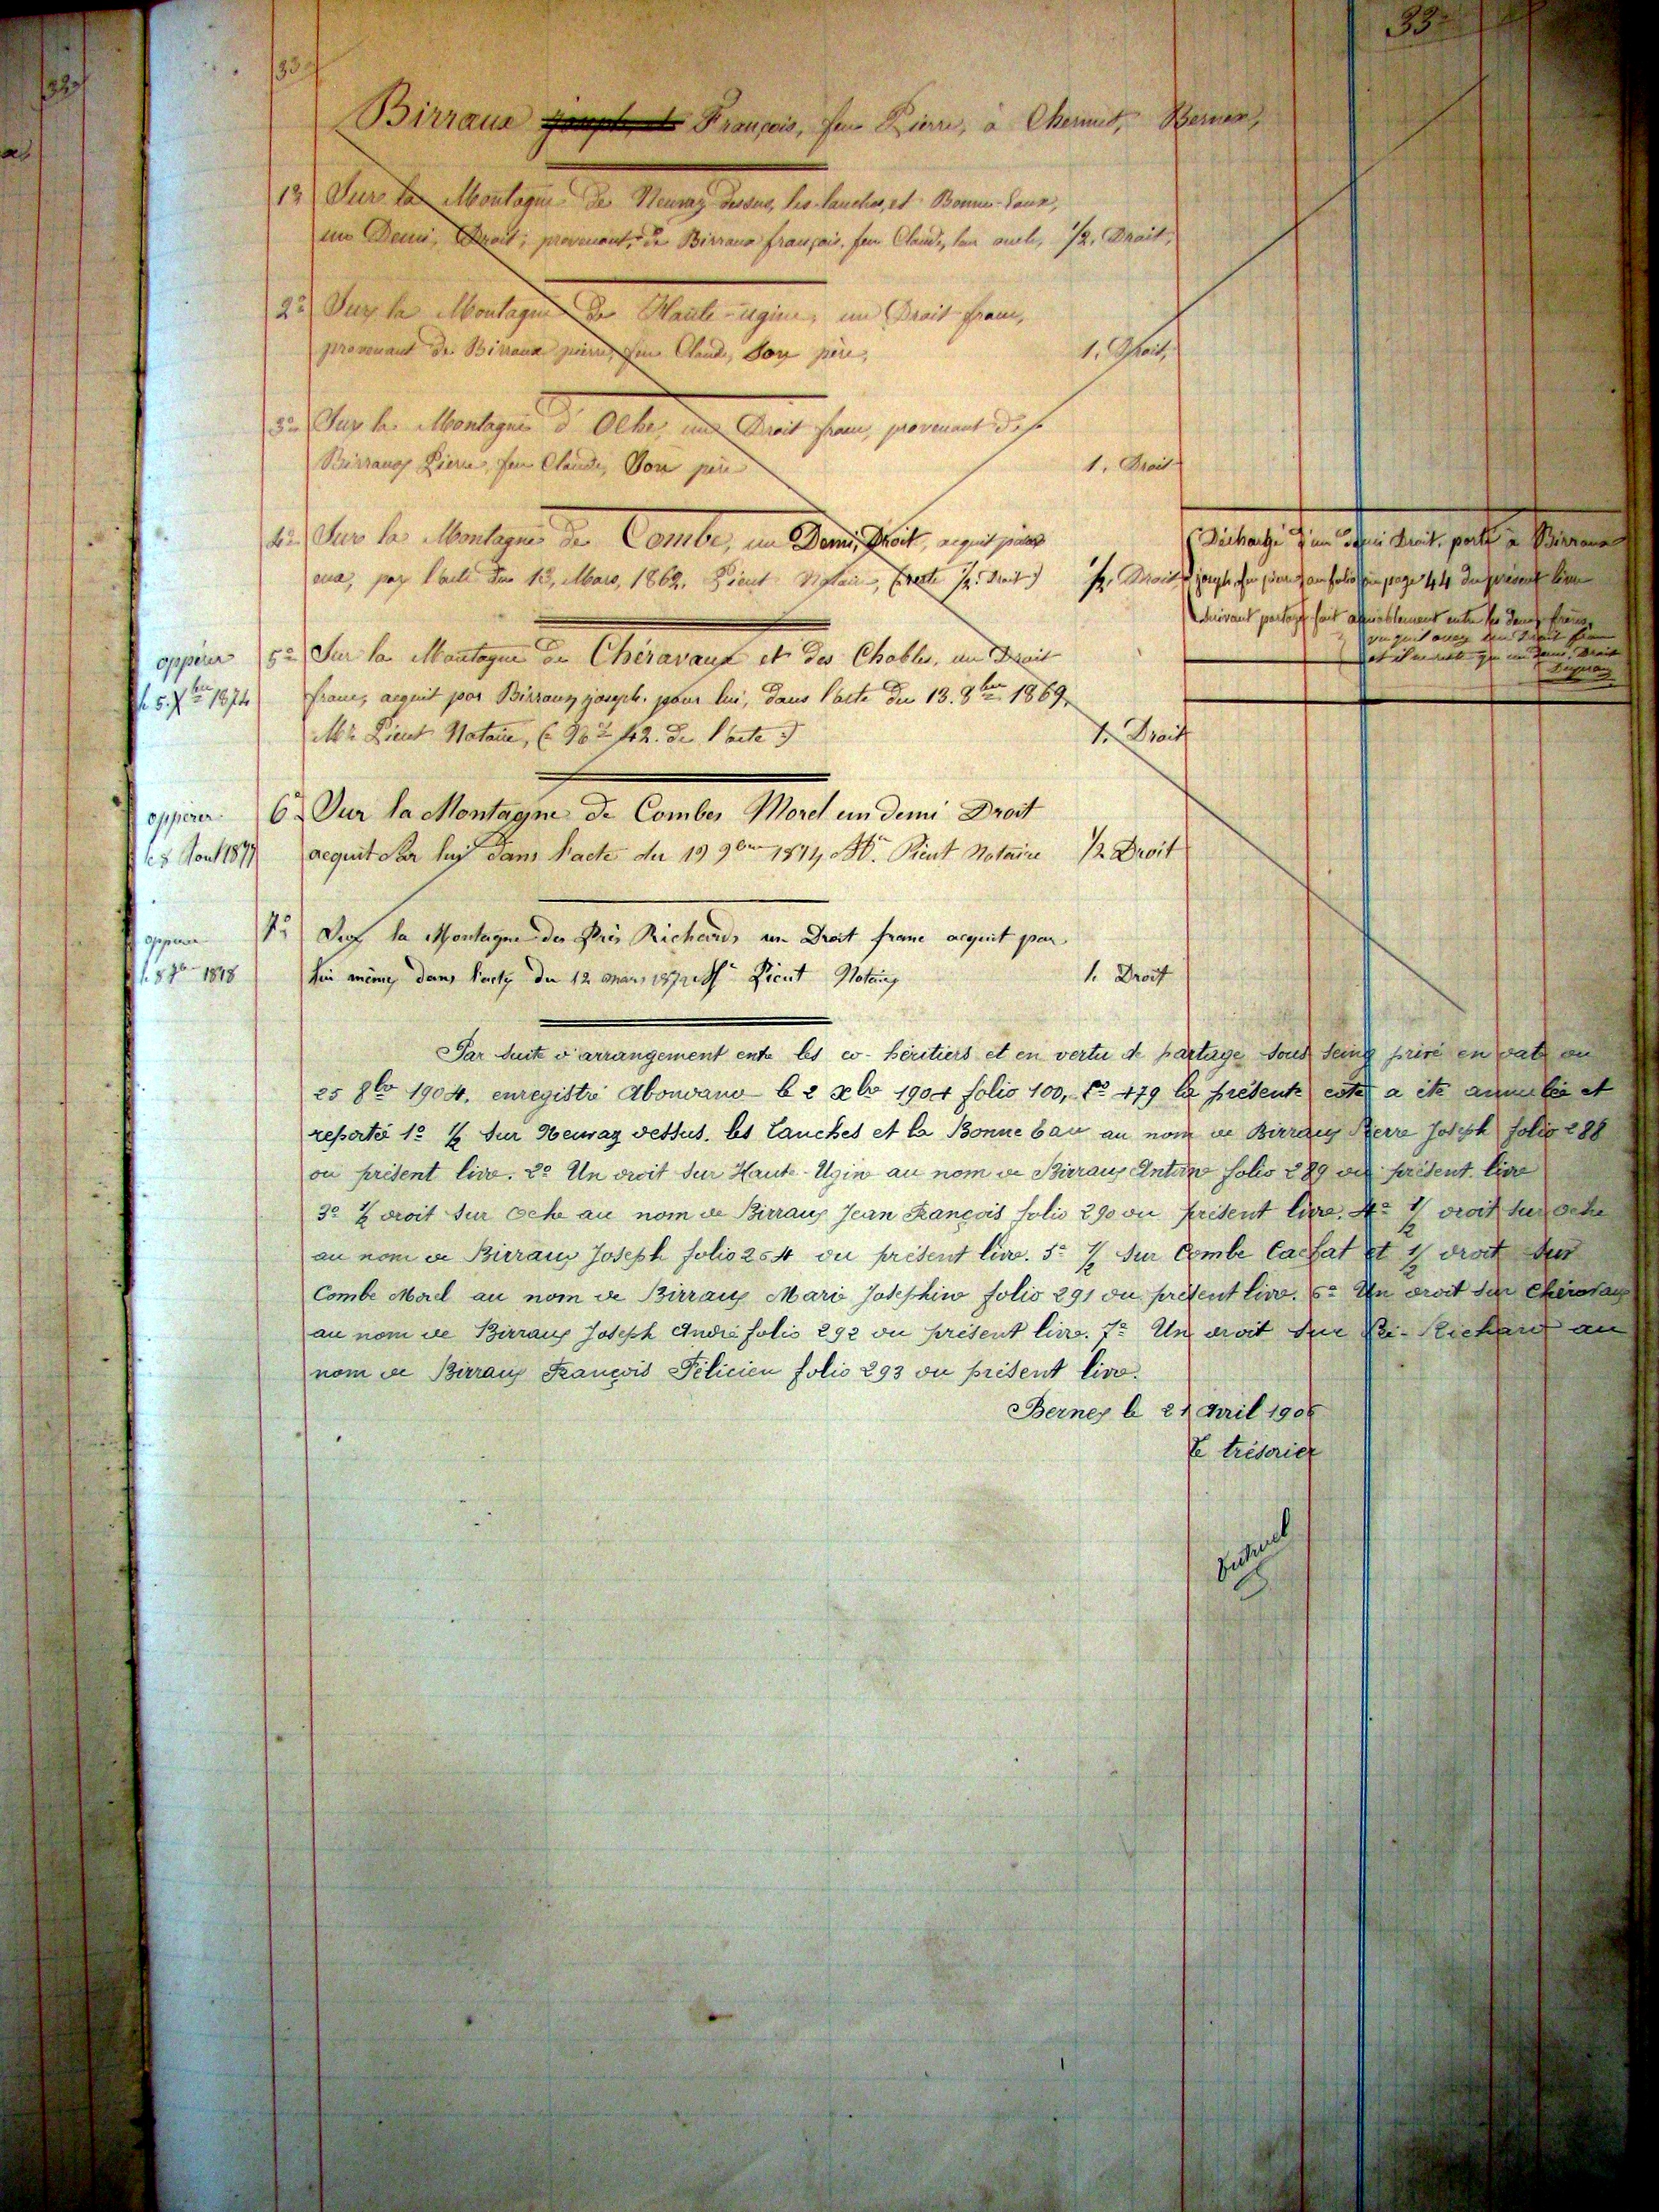 33
33
Birraux François, feu Pierre, à Chermet, Bernex,
1º Sur la Montagne de Neuvaz dessus, les lanches, et Bonne-Eaux,
un Demi, Droit; provenant, de Birraux françois, feu Claude, son oncle, 1/2. Droit,
2º Sur la Montagne de Haute-ugine, un Droit franc,
provenant de Birraux pierre, feu Claude, Son père, 1. Droit,
3º Sur la Montagne d'Oche, un Droit franc, provenant de
Birraux Pierre, feu Claude, Son père 1. Droit
4º Sur la Montagne de Combe, un Demi, Droit, acquit
eux, par l'acte du 13, Mars, 1862. Pieut Notaire, (reste 1/2. Droit) 1/2. Droit
(Décharge d'un demi droit, porté à Birraux
joseph, feu pierre, au folio page 44 du présent livre
suivant partage fait amiablement entre les deux frères,
un Droit franc
et il ne reste qu'un demi, Droit
opperer 5º Sur la Montagne de Chéravaux et des Chables, un Droit
le 5. Xbre 1874 franc, acquit par Birraux joseph. pour lui, dans l'acte du 13. 8bre 1869,
Me Pieut Notaire, (Nº 42. de l'acte) 1. Droit
opperer 6º Sur la Montagne de Combes Morel un demi Droit
le 8 Aout 1877 acquit Par luy dans l'acte du 19 9bre 1874 Me. Pieut Notaire 1/2 Droit
opperer 7º Sur la Montagne des Prés Richards un Droit franc acquit par
le 8 7bre 1878 lui même dans l'acte du 12 mars 1872 Me Pieut Notaire 1. Droit
Par suite d'arrangement entre les co-héritiers et en vertu de partage sous seing privé en date du
25 8bre 1904, enregistré Abondance le 2 xbre 1904 folio 100, Cº 479 la présente cote a été annulée et
reportée 1º 1/2 sur Neuvaz dessus, les Lanches et la Bonne Eau au nom de Birraux Pierre Joseph folio 288
du présent livre. 2º Un droit sur Haute-Ugine au nom de Birraux Antoine folio 289 du présent livre
3º 1/2 droit sur Oche au nom de Birraux Jean François folio 290 du présent livre. 4º 1/2 droit sur Oche
au nom de Birraux Joseph folio 254 du présent livre. 5º 1/2 sur Combe Cachat et 1/2 droit sur
Combe Morel au nom de Birraux Marie Joséphine folio 291 du présent livre. 6º Un droit sur Chéravaux
au nom de Birraux Joseph André folio 292 du présent livre. 7º Un droit sur Pré-Richard au
nom de Birraux François Félicien folio 293 du présent livre.
Bernex le 21 Avril 1906
Le trésorier